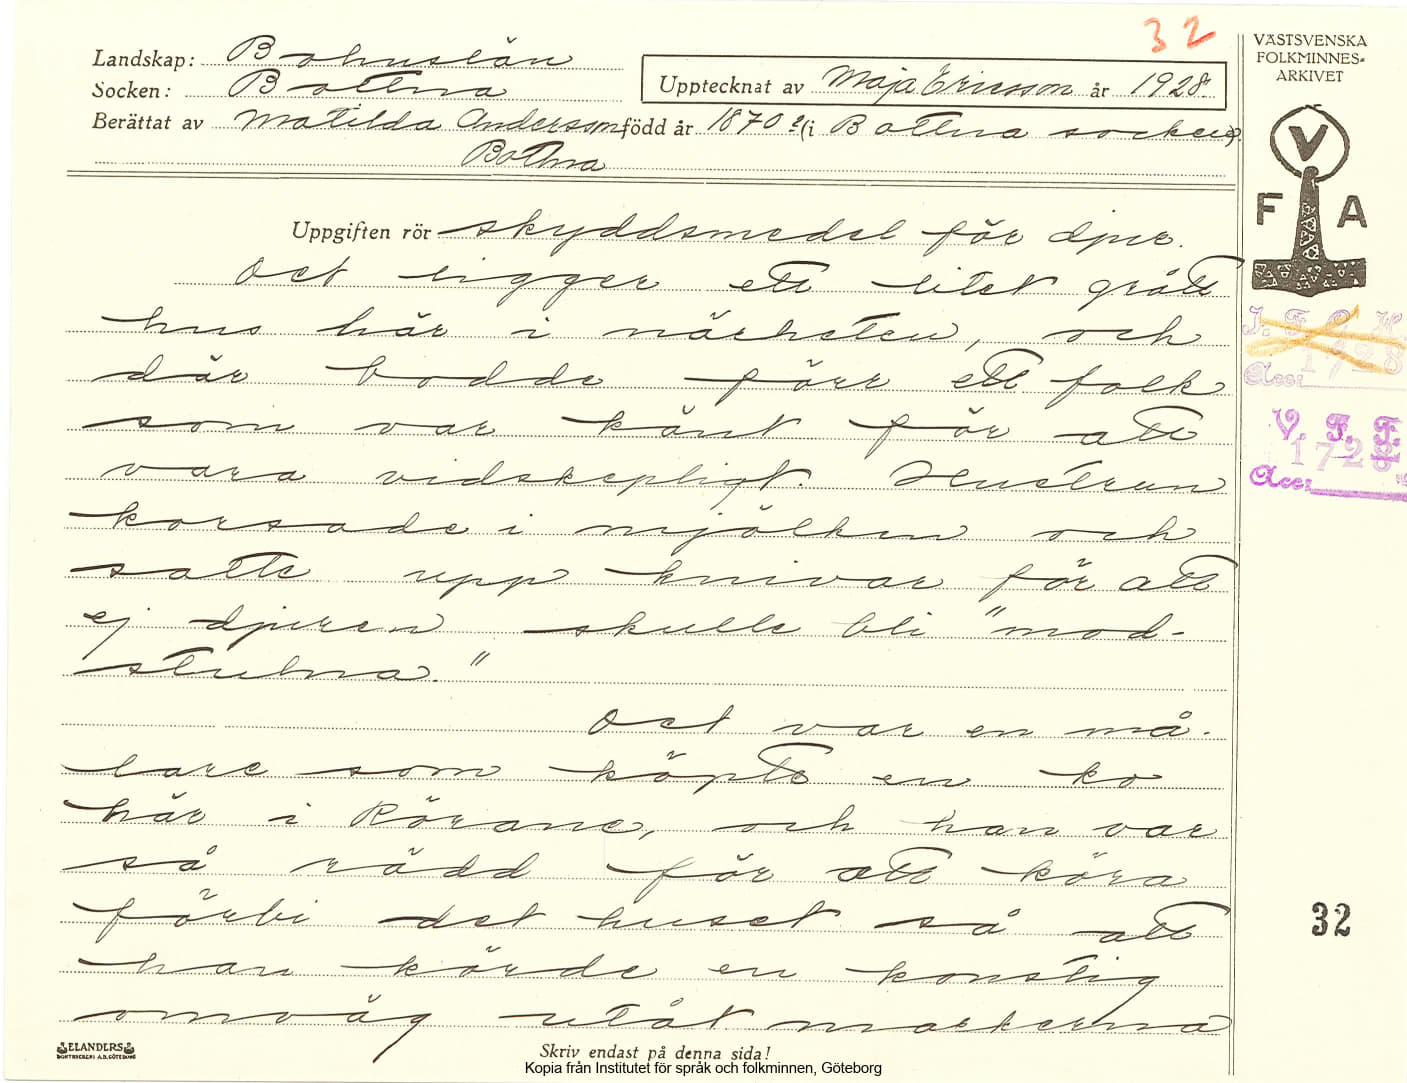 32
VÄSTSVENSKA
FOLKMINNES-
ARKIVET
Landskap: Bohuslän
Socken: Bottna
Upptecknat av Maja Ericsson år 1928
Berättat av Matilda Andersson född år 1870 i Bottna socken
Bottna
V
F A
Uppgiften rör skyddsmedel för djur.
Det ligger ett litet grått
hus här i närheten, och
där bodde förr ett folk
som var känt för att
vara vidskepligt. Hustrun
korsade i mjölken och
satte upp knivar för att
ej djuren skulle bli "mod-
stulna."
Det var en må-
lare som köpte en ko
här i Rörane, och han var
så rädd för att köra
förbi det huset så att
han körde en konstig
omväg utåt markerna
I. F. G. H.
1728
Acc:
V. F. F.
1728
Acc:
32
ELANDERS
BOKTRYCKERI A.B. GÖTEBORG
Skriv endast på denna sida!
Kopia från Institutet för språk och folkminnen, Göteborg